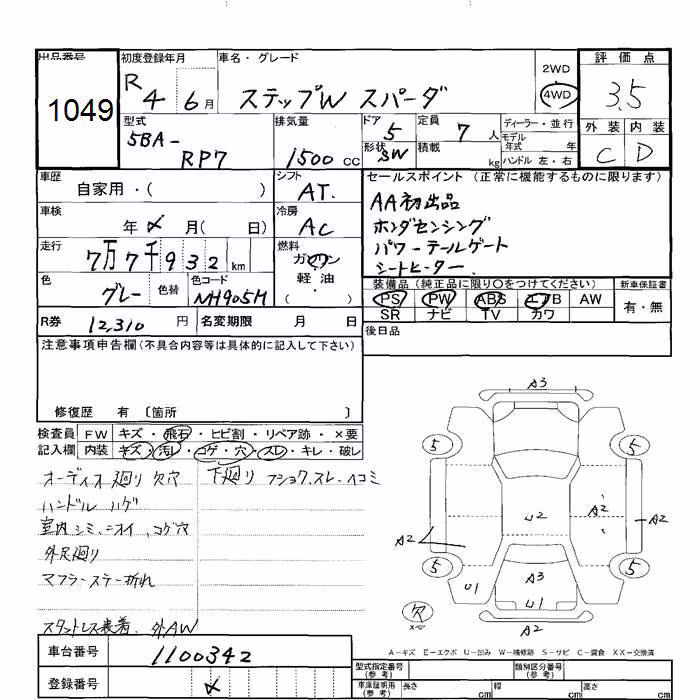 出品番号 初度登録年月 車名・グレード 評価点
1049 R4 6月 ステップW スパーダ 2WD 4WD 3.5
型式 排気量 ドア 定員 ディーラー・並行 外装 内装
5BA-RP7 1500cc 5 7人 モデル年式 年 C D
形状 SW 積載 kg ハンドル 左・右
車歴 シフト セールスポイント (正常に機能するものに限ります)
自家用・( ) AT.
AA初出品
車検 年 月( 日) 冷房 AC
ホンダセンシング
パワーテールゲート
走行 7万7千932km 燃料 ガソリン 軽油・
シートヒーター.
色 グレー 色替 色コード NH905M
装備品(純正品に限り○をつけてください) 新車保証書
PS PW ABS エアB AW 有・無
SR ナビ TV カワ
R券 12,310円 名変期限 月 日
後日品
注意事項申告欄(不具合内容等は具体的に記入して下さい)
修復歴 有 〔箇所 〕
検査員記入欄 FW キズ・飛石・ヒビ割・リペア跡・×要
内装 キズ・汚レ・コゲ・穴・スレ・キレ・破レ
オーディオ廻り欠穴 下廻り フショク.スレ.ヘコミ
ハンドル ハゲ
室内シミ.ニオイ.コゲ穴
外足廻り
マフラーステー折れ
スタットレス装着.外AW
A3
5 5
U2 A2
A2 A2
5 5
U1 A3
U1
欠 スペア A2
A-キズ E-エクボ U-凹み W-補修跡 S-サビ C-腐食 XX-交換済
車台番号 1100342
登録番号
型式指定番号(参考) 類別区分番号(参考)
車庫証明用(参考) 長さ cm 幅 cm 高さ cm